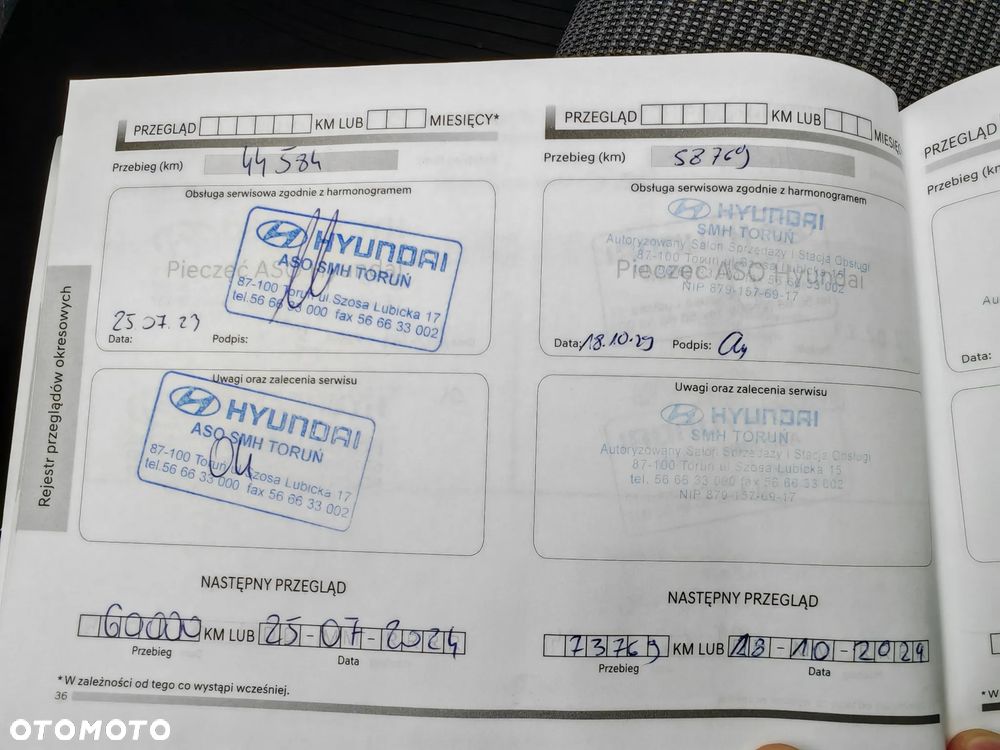 PRZEGLĄD KM LUB MIESIĘCY*
Przebieg (km) 44584
Obsługa serwisowa zgodnie z harmonogramem
Pieczęć ASO Hyundai
HYUNDAI
ASO SMH TORUŃ
87-100 Toruń ul Szosa Lubicka 17
tel.56 66 33 000 fax 56 66 33 002
25.07.23
Data: Podpis:
Uwagi oraz zalecenia serwisu
HYUNDAI
ASO SMH TORUŃ
87-100 Toruń Szosa Lubicka 17
tel.56 66 33 000 fax 56 66 33 002
NASTĘPNY PRZEGLĄD
60000 KM LUB 25-07-2024
Przebieg Data
*W zależności od tego co wystąpi wcześniej.
36
Rejestr przeglądów okresowych
PRZEGLĄD KM LUB MIESIĘC
Przebieg (km) 58769
Obsługa serwisowa zgodnie z harmonogramem
HYUNDAI
SMH TORUŃ
Autoryzowany Salon Sprzedaży i Stacja Obsługi
87-100 Toruń ul Szosa Lubicka 15
Pieczęć ASO Hyundai
56 66 33 002
NIP 879-157-69-17
Data: 18.10.23 Podpis:
Uwagi oraz zalecenia serwisu
HYUNDAI
SMH TORUŃ
Autoryzowany Salon Sprzedaży i Stacja Obsługi
87-100 Toruń ul Szosa Lubicka 15
tel. 56 66 33 000 fax 56 66 33 002
NIP 879-157-69-17
NASTĘPNY PRZEGLĄD
73769 KM LUB 18-10-2024
Przebieg Data
PRZEGLĄD
Przebieg (km
Data:
*W
OTOMOTO